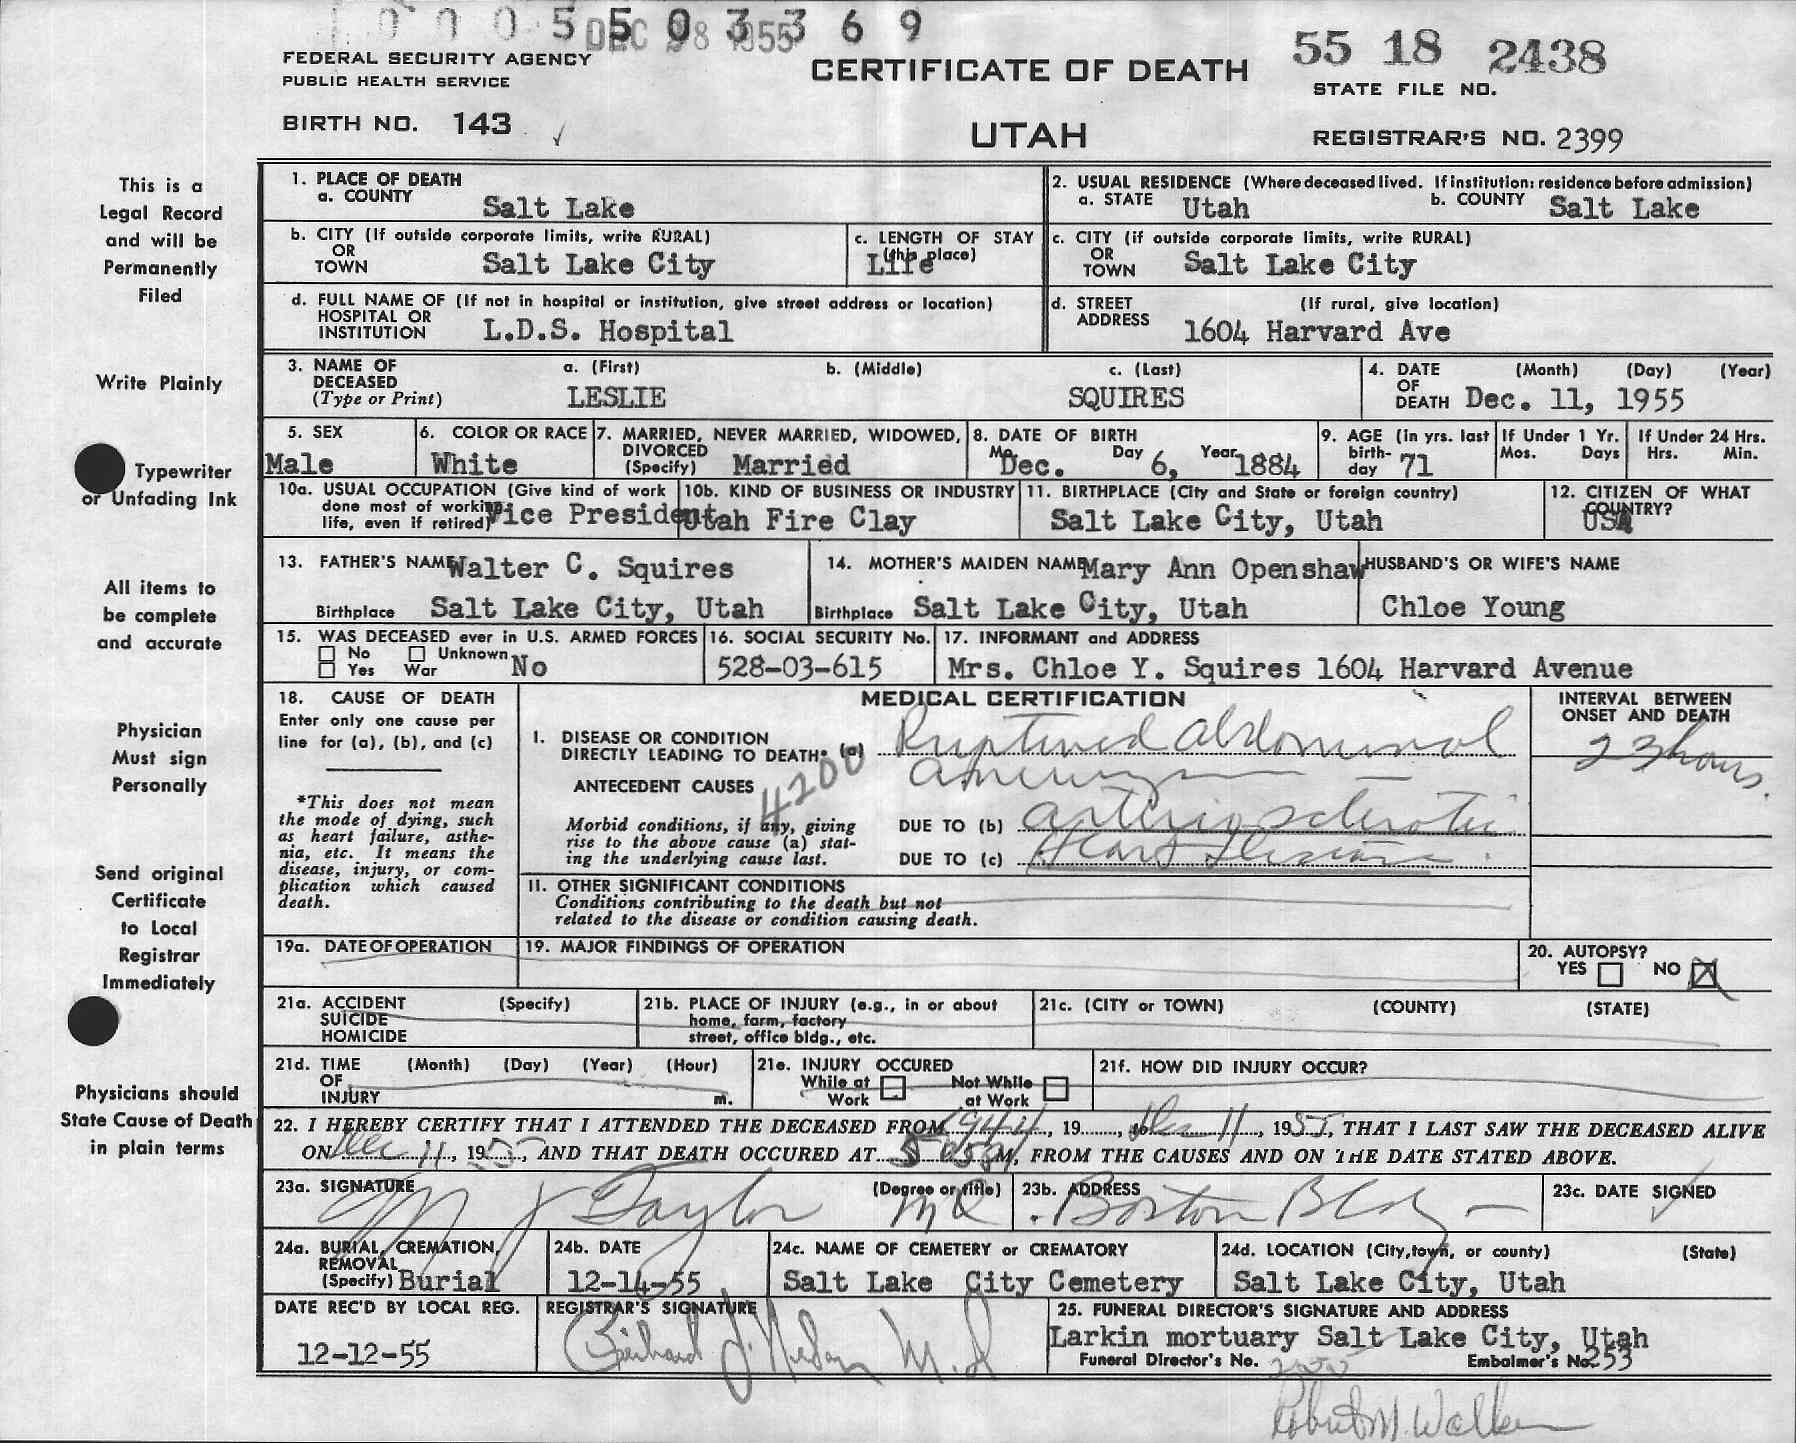 0 0 0 5 5 0 3 3 6 9
DEC 28 1955
FEDERAL SECURITY AGENCY
PUBLIC HEALTH SERVICE
CERTIFICATE OF DEATH
55 18 2438
STATE FILE NO.
BIRTH NO. 143
UTAH
REGISTRAR'S NO. 2399
This is a
Legal Record
and will be
Permanently
Filed
Write Plainly
Typewriter
or Unfading Ink
All items to
be complete
and accurate
Physician
Must sign
Personally
Send original
Certificate
to Local
Registrar
Immediately
Physicians should
State Cause of Death
in plain terms
1. PLACE OF DEATH
a. COUNTY Salt Lake
2. USUAL RESIDENCE (Where deceased lived. If institution: residence before admission)
a. STATE Utah b. COUNTY Salt Lake
b. CITY (If outside corporate limits, write RURAL)
OR
TOWN Salt Lake City
c. LENGTH OF STAY
(this place)
Life
c. CITY (if outside corporate limits, write RURAL)
OR
TOWN Salt Lake City
d. FULL NAME OF (If not in hospital or institution, give street address or location)
HOSPITAL OR
INSTITUTION L.D.S. Hospital
d. STREET (If rural, give location)
ADDRESS 1604 Harvard Ave
3. NAME OF a. (First) b. (Middle) c. (Last)
DECEASED
(Type or Print) LESLIE SQUIRES
4. DATE (Month) (Day) (Year)
OF
DEATH Dec. 11, 1955
5. SEX
Male
6. COLOR OR RACE
White
7. MARRIED, NEVER MARRIED, WIDOWED,
DIVORCED
(Specify) Married
8. DATE OF BIRTH
Mo. Dec. Day 6, Year 1884
9. AGE (In yrs. last
birth-
day 71
If Under 1 Yr.
Mos. Days
If Under 24 Hrs.
Hrs. Min.
10a. USUAL OCCUPATION (Give kind of work
done most of working
life, even if retired) Vice President
10b. KIND OF BUSINESS OR INDUSTRY
Utah Fire Clay
11. BIRTHPLACE (City and State or foreign country)
Salt Lake City, Utah
12. CITIZEN OF WHAT
COUNTRY?
USA
13. FATHER'S NAME Walter C. Squires
Birthplace Salt Lake City, Utah
14. MOTHER'S MAIDEN NAME Mary Ann Openshaw
Birthplace Salt Lake City, Utah
HUSBAND'S OR WIFE'S NAME
Chloe Young
15. WAS DECEASED ever in U.S. ARMED FORCES
No Unknown No
Yes War
16. SOCIAL SECURITY No.
528-03-615
17. INFORMANT and ADDRESS
Mrs. Chloe Y. Squires 1604 Harvard Avenue
18. CAUSE OF DEATH
Enter only one cause per
line for (a), (b), and (c)
*This does not mean
the mode of dying, such
as heart failure, asthe-
nia, etc. It means the
disease, injury, or com-
plication which caused
death.
MEDICAL CERTIFICATION
INTERVAL BETWEEN
ONSET AND DEATH
I. DISEASE OR CONDITION
DIRECTLY LEADING TO DEATH* (a) Ruptured abdominal
aneurysm
23 hours.
ANTECEDENT CAUSES
4200
Morbid conditions, if any, giving
rise to the above cause (a) stat-
ing the underlying cause last.
DUE TO (b) arteriosclerotic
DUE TO (c) Heart Disease.
II. OTHER SIGNIFICANT CONDITIONS
Conditions contributing to the death but not
related to the disease or condition causing death.
19a. DATE OF OPERATION
19. MAJOR FINDINGS OF OPERATION
20. AUTOPSY?
YES NO X
21a. ACCIDENT (Specify)
SUICIDE
HOMICIDE
21b. PLACE OF INJURY (e.g., in or about
home, farm, factory
street, office bldg., etc.
21c. (CITY or TOWN) (COUNTY) (STATE)
21d. TIME (Month) (Day) (Year) (Hour)
OF
INJURY m.
21e. INJURY OCCURED
While at Not While
Work at Work
21f. HOW DID INJURY OCCUR?
22. I HEREBY CERTIFY THAT I ATTENDED THE DECEASED FROM 1944, 19, to Dec 11, 1955, THAT I LAST SAW THE DECEASED ALIVE
ON Dec 11, 1955, AND THAT DEATH OCCURED AT M, FROM THE CAUSES AND ON THE DATE STATED ABOVE.
23a. SIGNATURE (Degree or title)
Taylor MD
23b. ADDRESS
Boston Bldg
23c. DATE SIGNED
24a. BURIAL, CREMATION,
REMOVAL
(Specify) Burial
24b. DATE
12-14-55
24c. NAME OF CEMETERY or CREMATORY
Salt Lake City Cemetery
24d. LOCATION (City, town, or county) (State)
Salt Lake City, Utah
DATE REC'D BY LOCAL REG.
12-12-55
REGISTRAR'S SIGNATURE
M.D
25. FUNERAL DIRECTOR'S SIGNATURE AND ADDRESS
Larkin mortuary Salt Lake City, Utah
Funeral Director's No. Embalmer's No. 253
Robert M. Walker